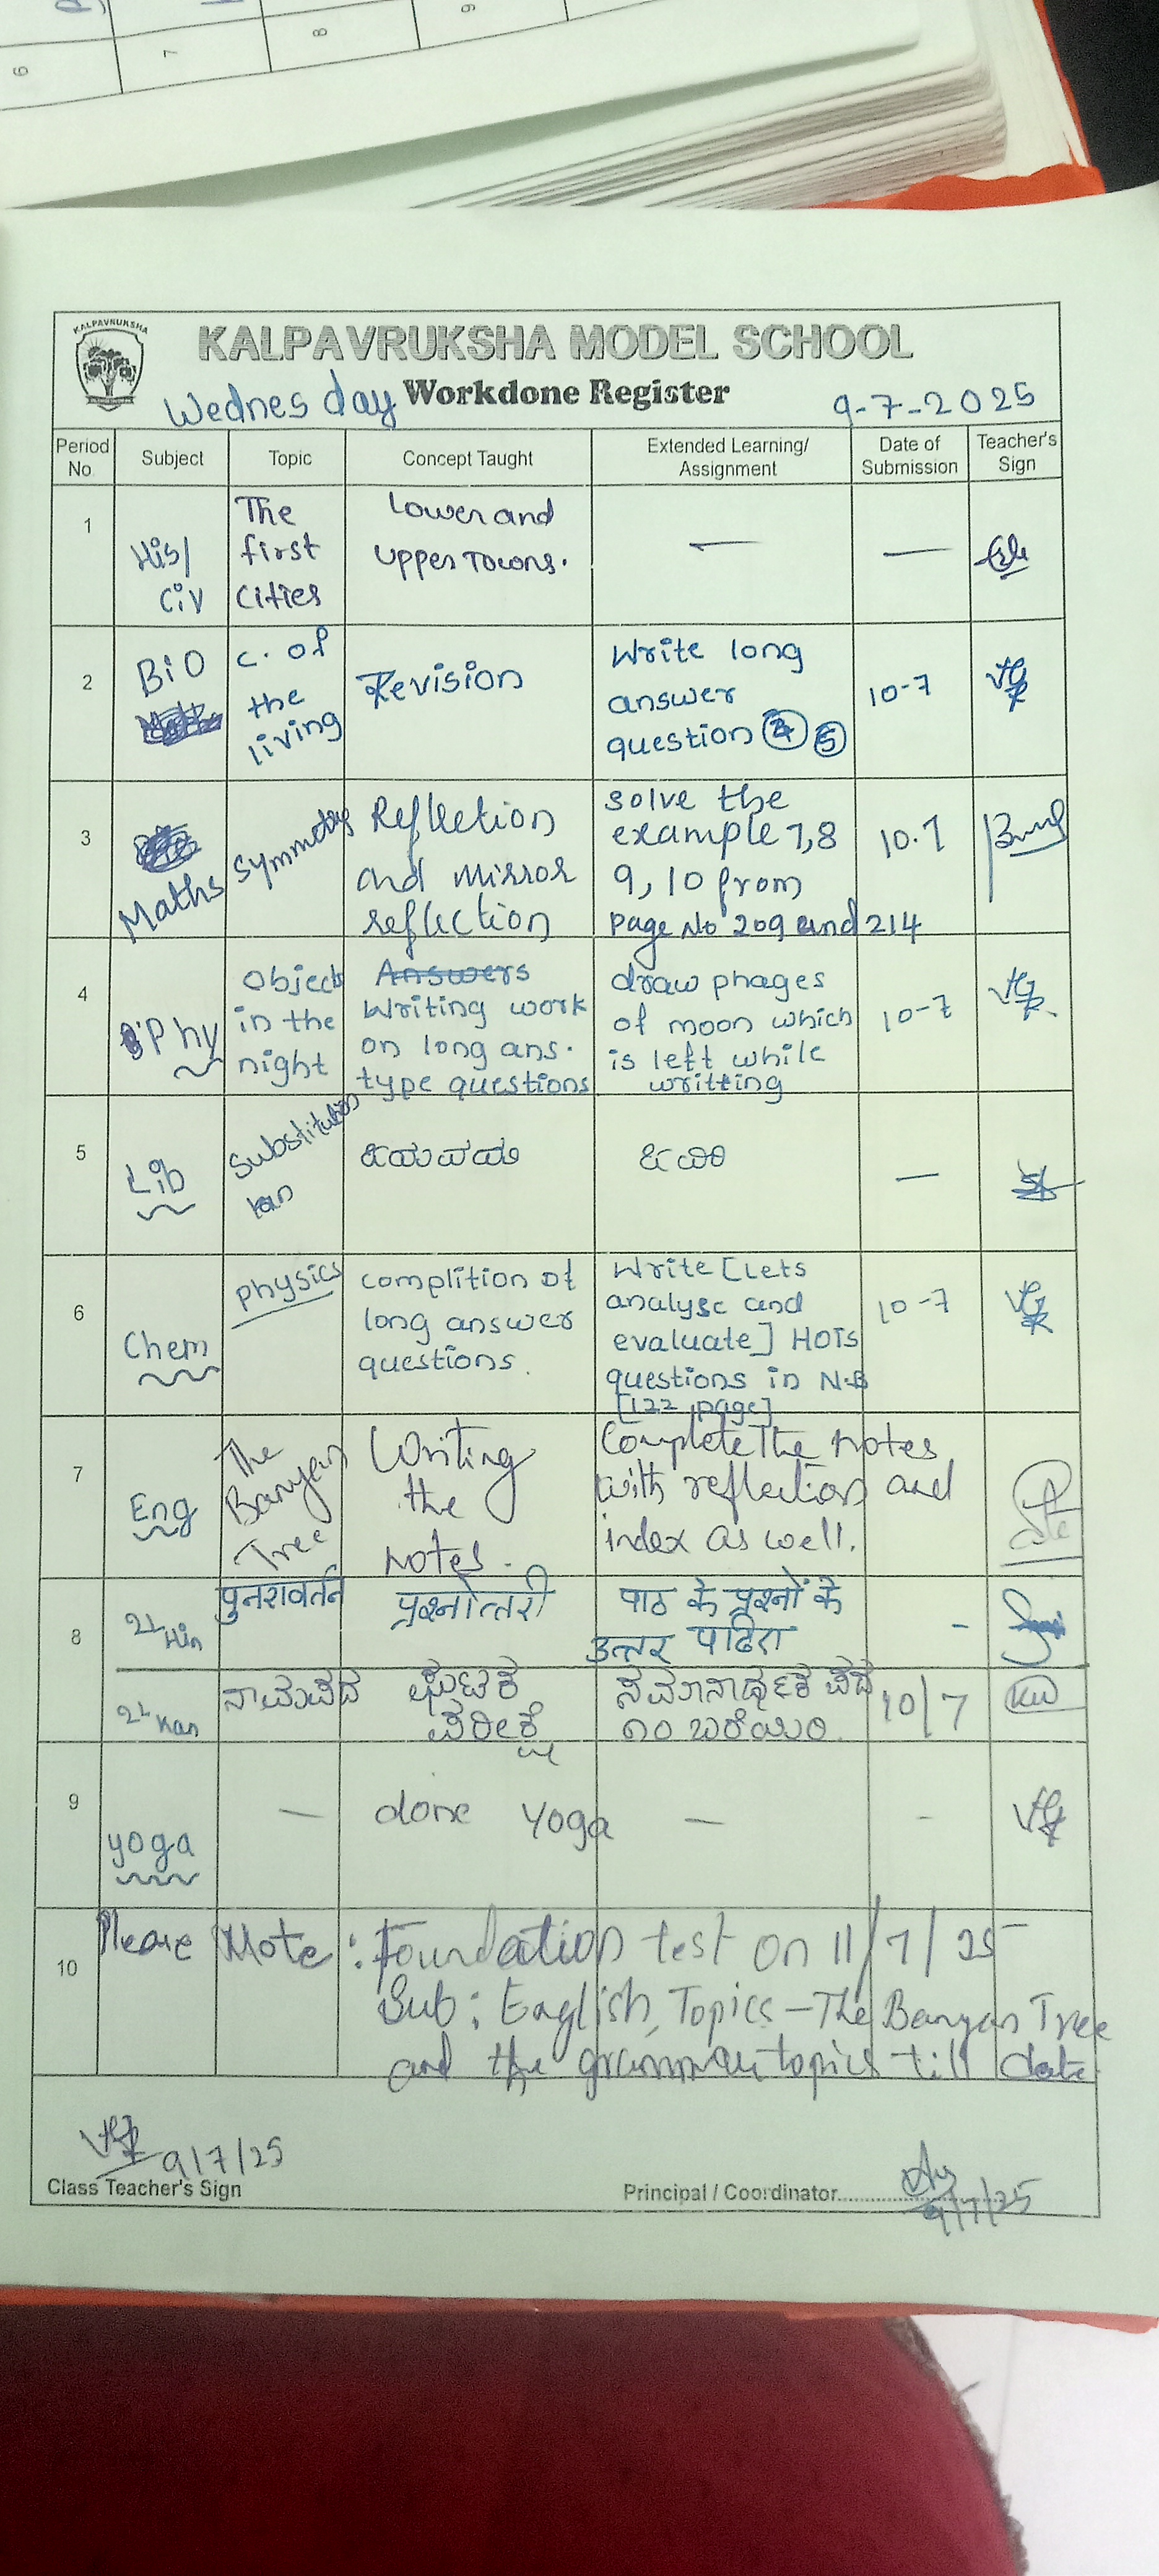 6
7
8
9
KALPAVRUKSHA
KALPAVRUKSHA MODEL SCHOOL
Wednesday Workdone Register 9-7-2025
Period No. Subject Topic Concept Taught Extended Learning/ Assignment Date of Submission Teacher's Sign
1
His/
Civ
The
first
cities
Lower and
upper Towns.
—
—
2
BiO
C. of
the
living
Revision
Write long
answer
question 4 5
10-7
3
Maths
Symmetry
Reflection
and mirror
reflection
solve the
example 7,8
9, 10 from
page No 209 and 214
10.7
4
Phy
Objects
in the
night
Answers
Writing work
on long ans.
type questions
draw phages
of moon which
is left while
writting
10-7
5
Lib
Substitution
kan
—
6
Chem
physics
complition of
long answer
questions.
Write [Lets
analyse and
evaluate] HOTs
questions in N.B
[122 page]
10-7
7
Eng
The
Banyan
Tree
Writing
the
notes.
Complete The notes
with reflection and
index as well.
8
2L Hin
पुनरावर्तन
प्रश्नोत्तरी
पाठ के प्रश्नों के
उत्तर पढिए
-
2L Kan
ನಾಮಪದ
ಘಟಕ
ಪರೀಕ್ಷೆ
ಸಮಾನಾರ್ಥಕ ಪದ
೧೦ ಬರೆಯಿರಿ.
10/7
9
yoga
—
done yoga
—
-
10
Please Note: Foundation test on 11/7/25
Sub: English, Topics – The Banyan Tree
and the grammar topics till date.
9/7/25
Class Teacher's Sign
Principal / Coordinator
9/7/25